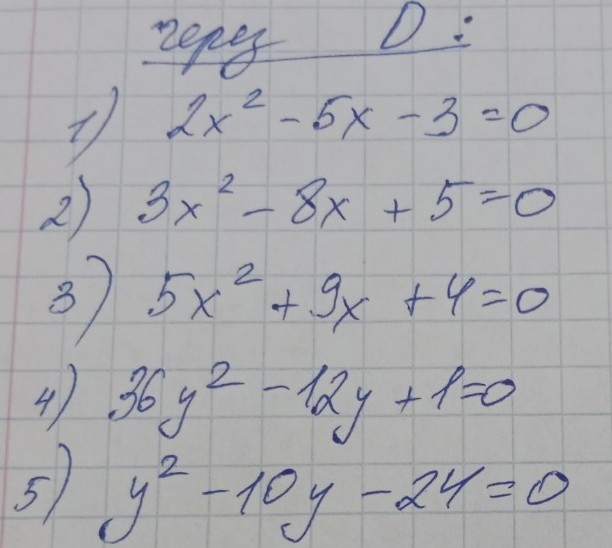 через D:
1) 2x² - 5x - 3 = 0
2) 3x² - 8x + 5 = 0
3) 5x² + 9x + 4 = 0
4) 36y² - 12y + 1 = 0
5) y² - 10y - 24 = 0